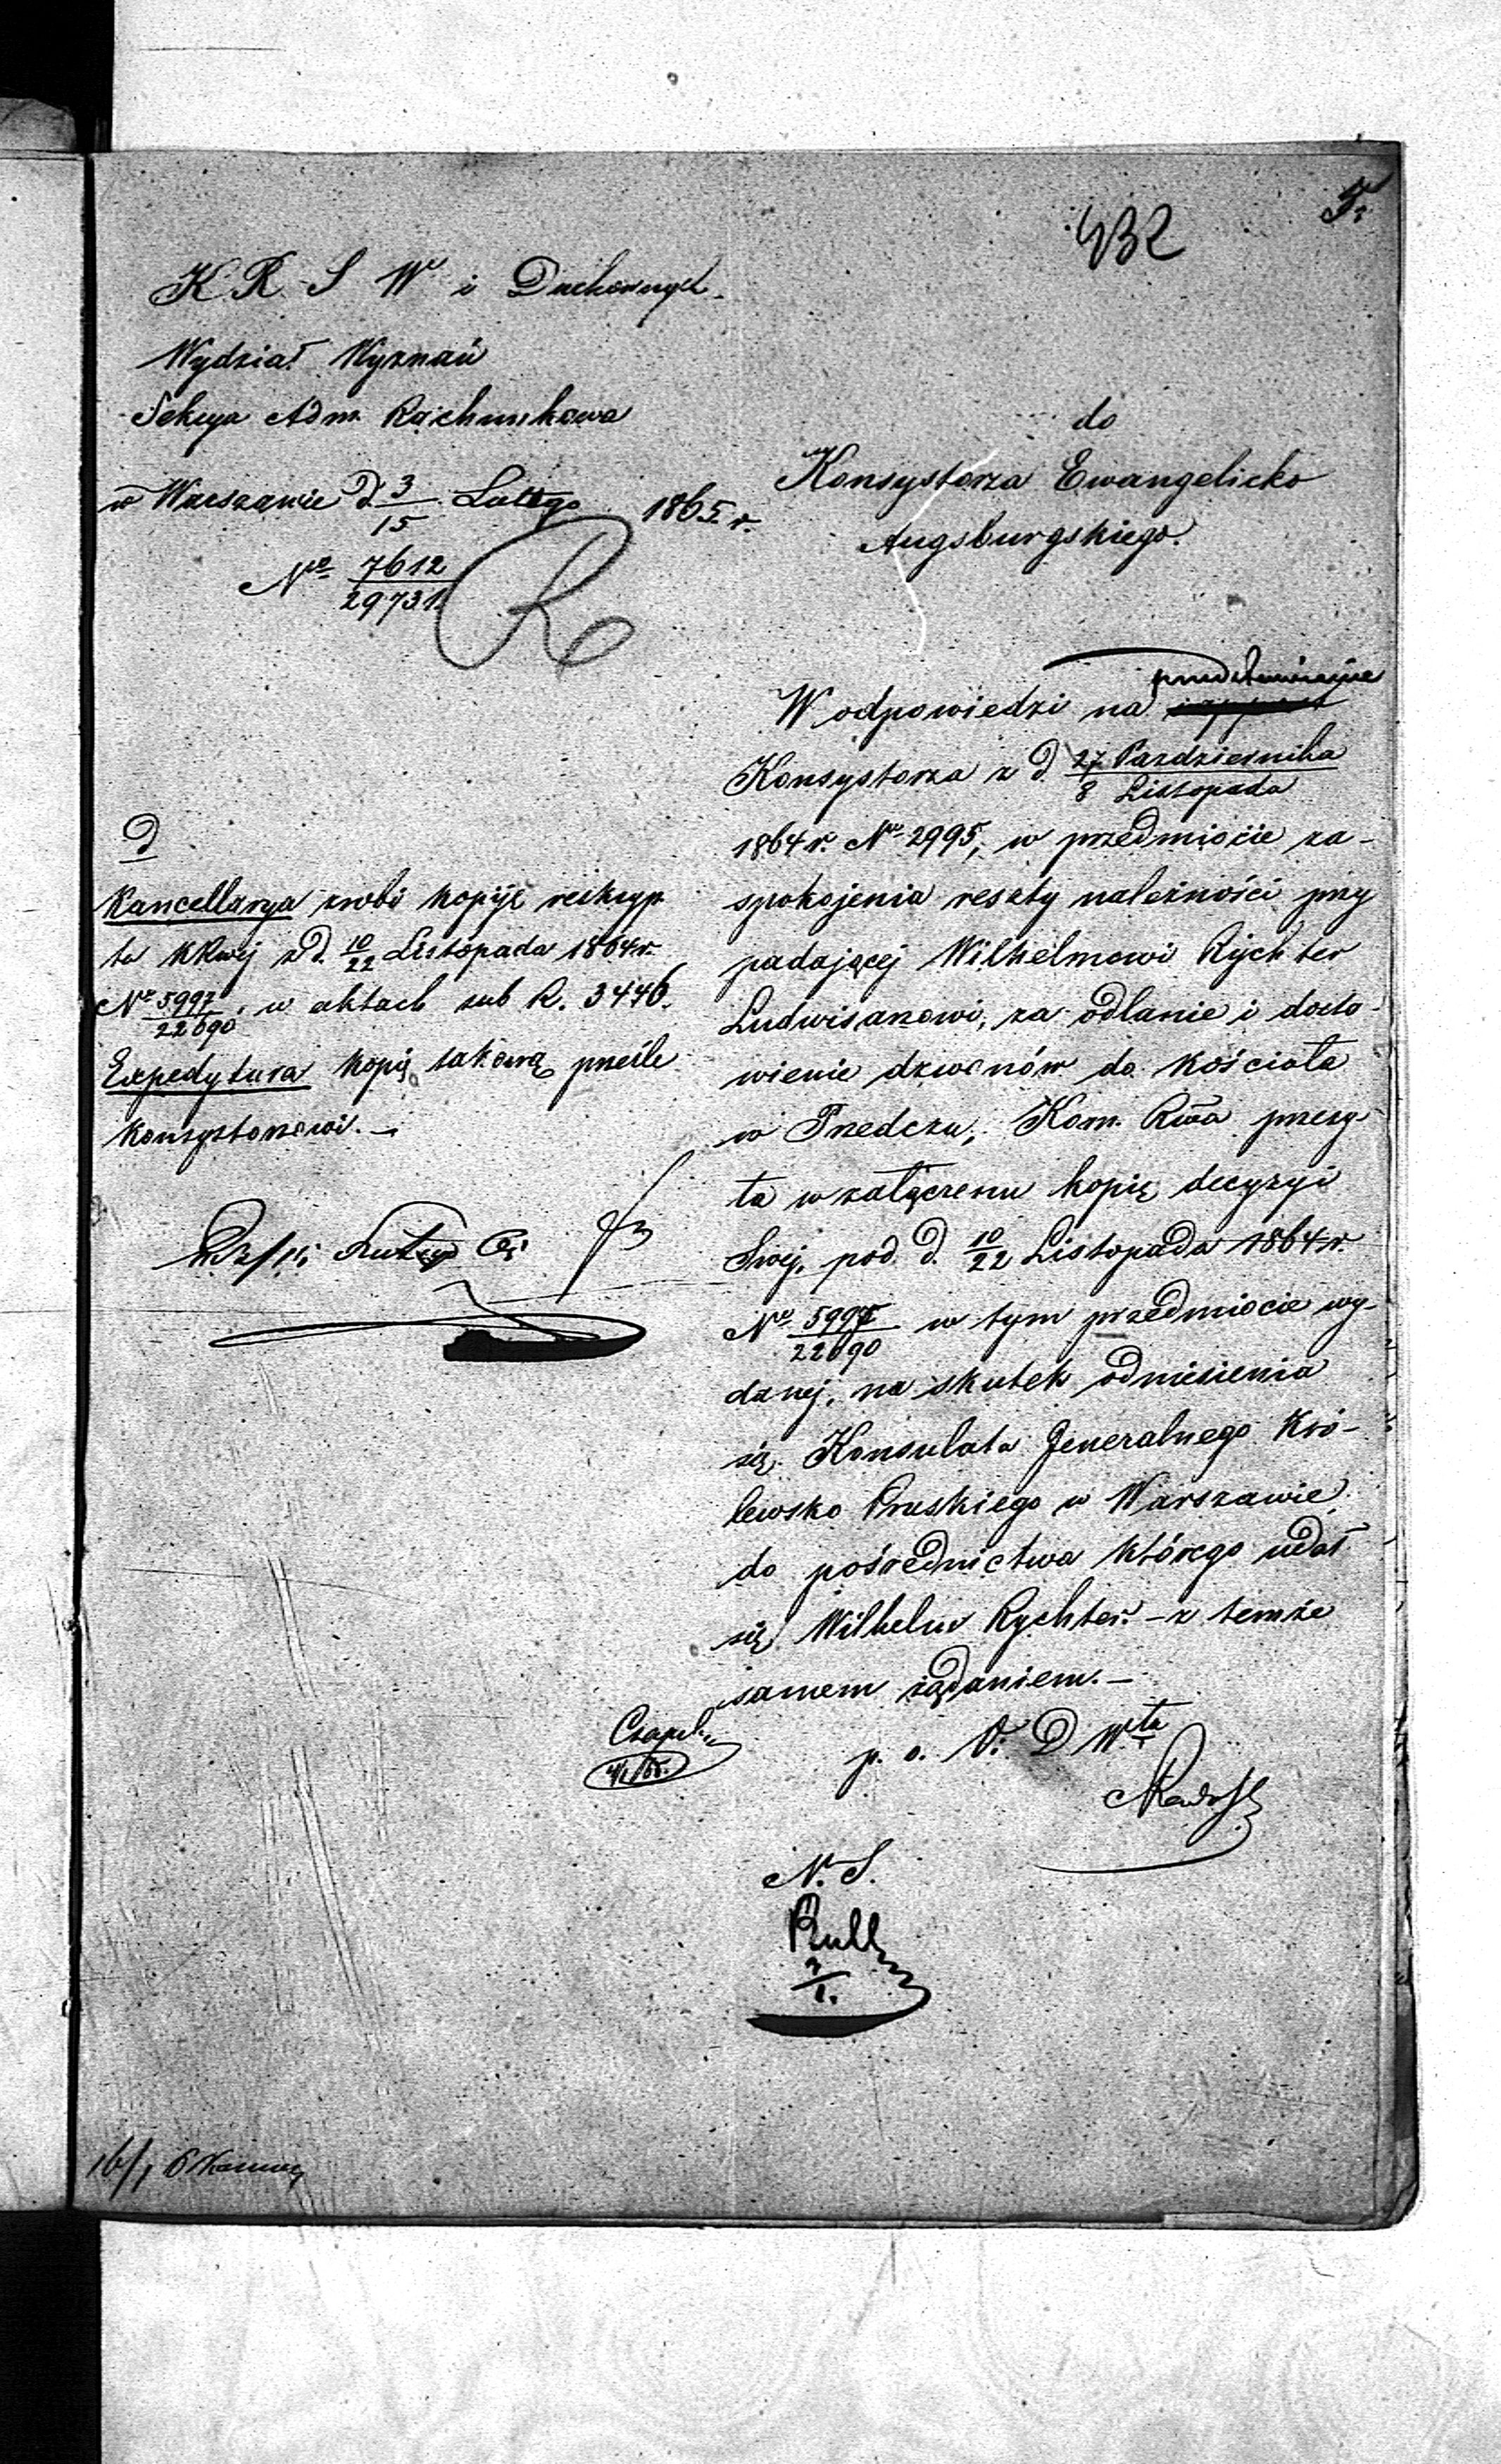 432
K R S W i Duchownych.
Wydział Wyznań
Sekcya Adm. Rachunkowa
w Warszawie d. 3/15 Lutego 1865 r.
Nr 7612/29731
R
do
Konsystorza Ewangelicko
Augsburgskiego.
W odpowiedzi na przedstawienie
Konsystorza z d. 27 Pazdziernika/8 Listopada
1864 r. Nr 2995, w przedmiocie za-
spokojenia reszty należności przy
padającej Wilhelmowi Rychter
Ludwisarzowi, za odlanie i dosta-
wienie dzwonów do kościoła
w Przedczu, Kom. Rwa przesy-
ła w załączeniu kopię decyzyi
Swej, pod d. 10/22 Listopada 1864 r.
Nr 5997/22690 w tym przedmiocie wy-
danej, na skutek odniesienia
się Konsulatu Jeneralnego Kró-
lewsko Pruskiego w Warszawie
do pośrednictwa którego udał
się Wilhelm Rychter. – z temże
samem żądaniem. –
p. o. V. D Wta
N. S.
Rull
D
Kancellarya zrobi kopiję reskryp
tu KRwej z d. 10/22 Listopada 1864 r.
Nr 5997/22690. w aktach sub R. 3446.
Expedytura kopię takową prześle
Konsystorzowi. –
Lutego
16/1